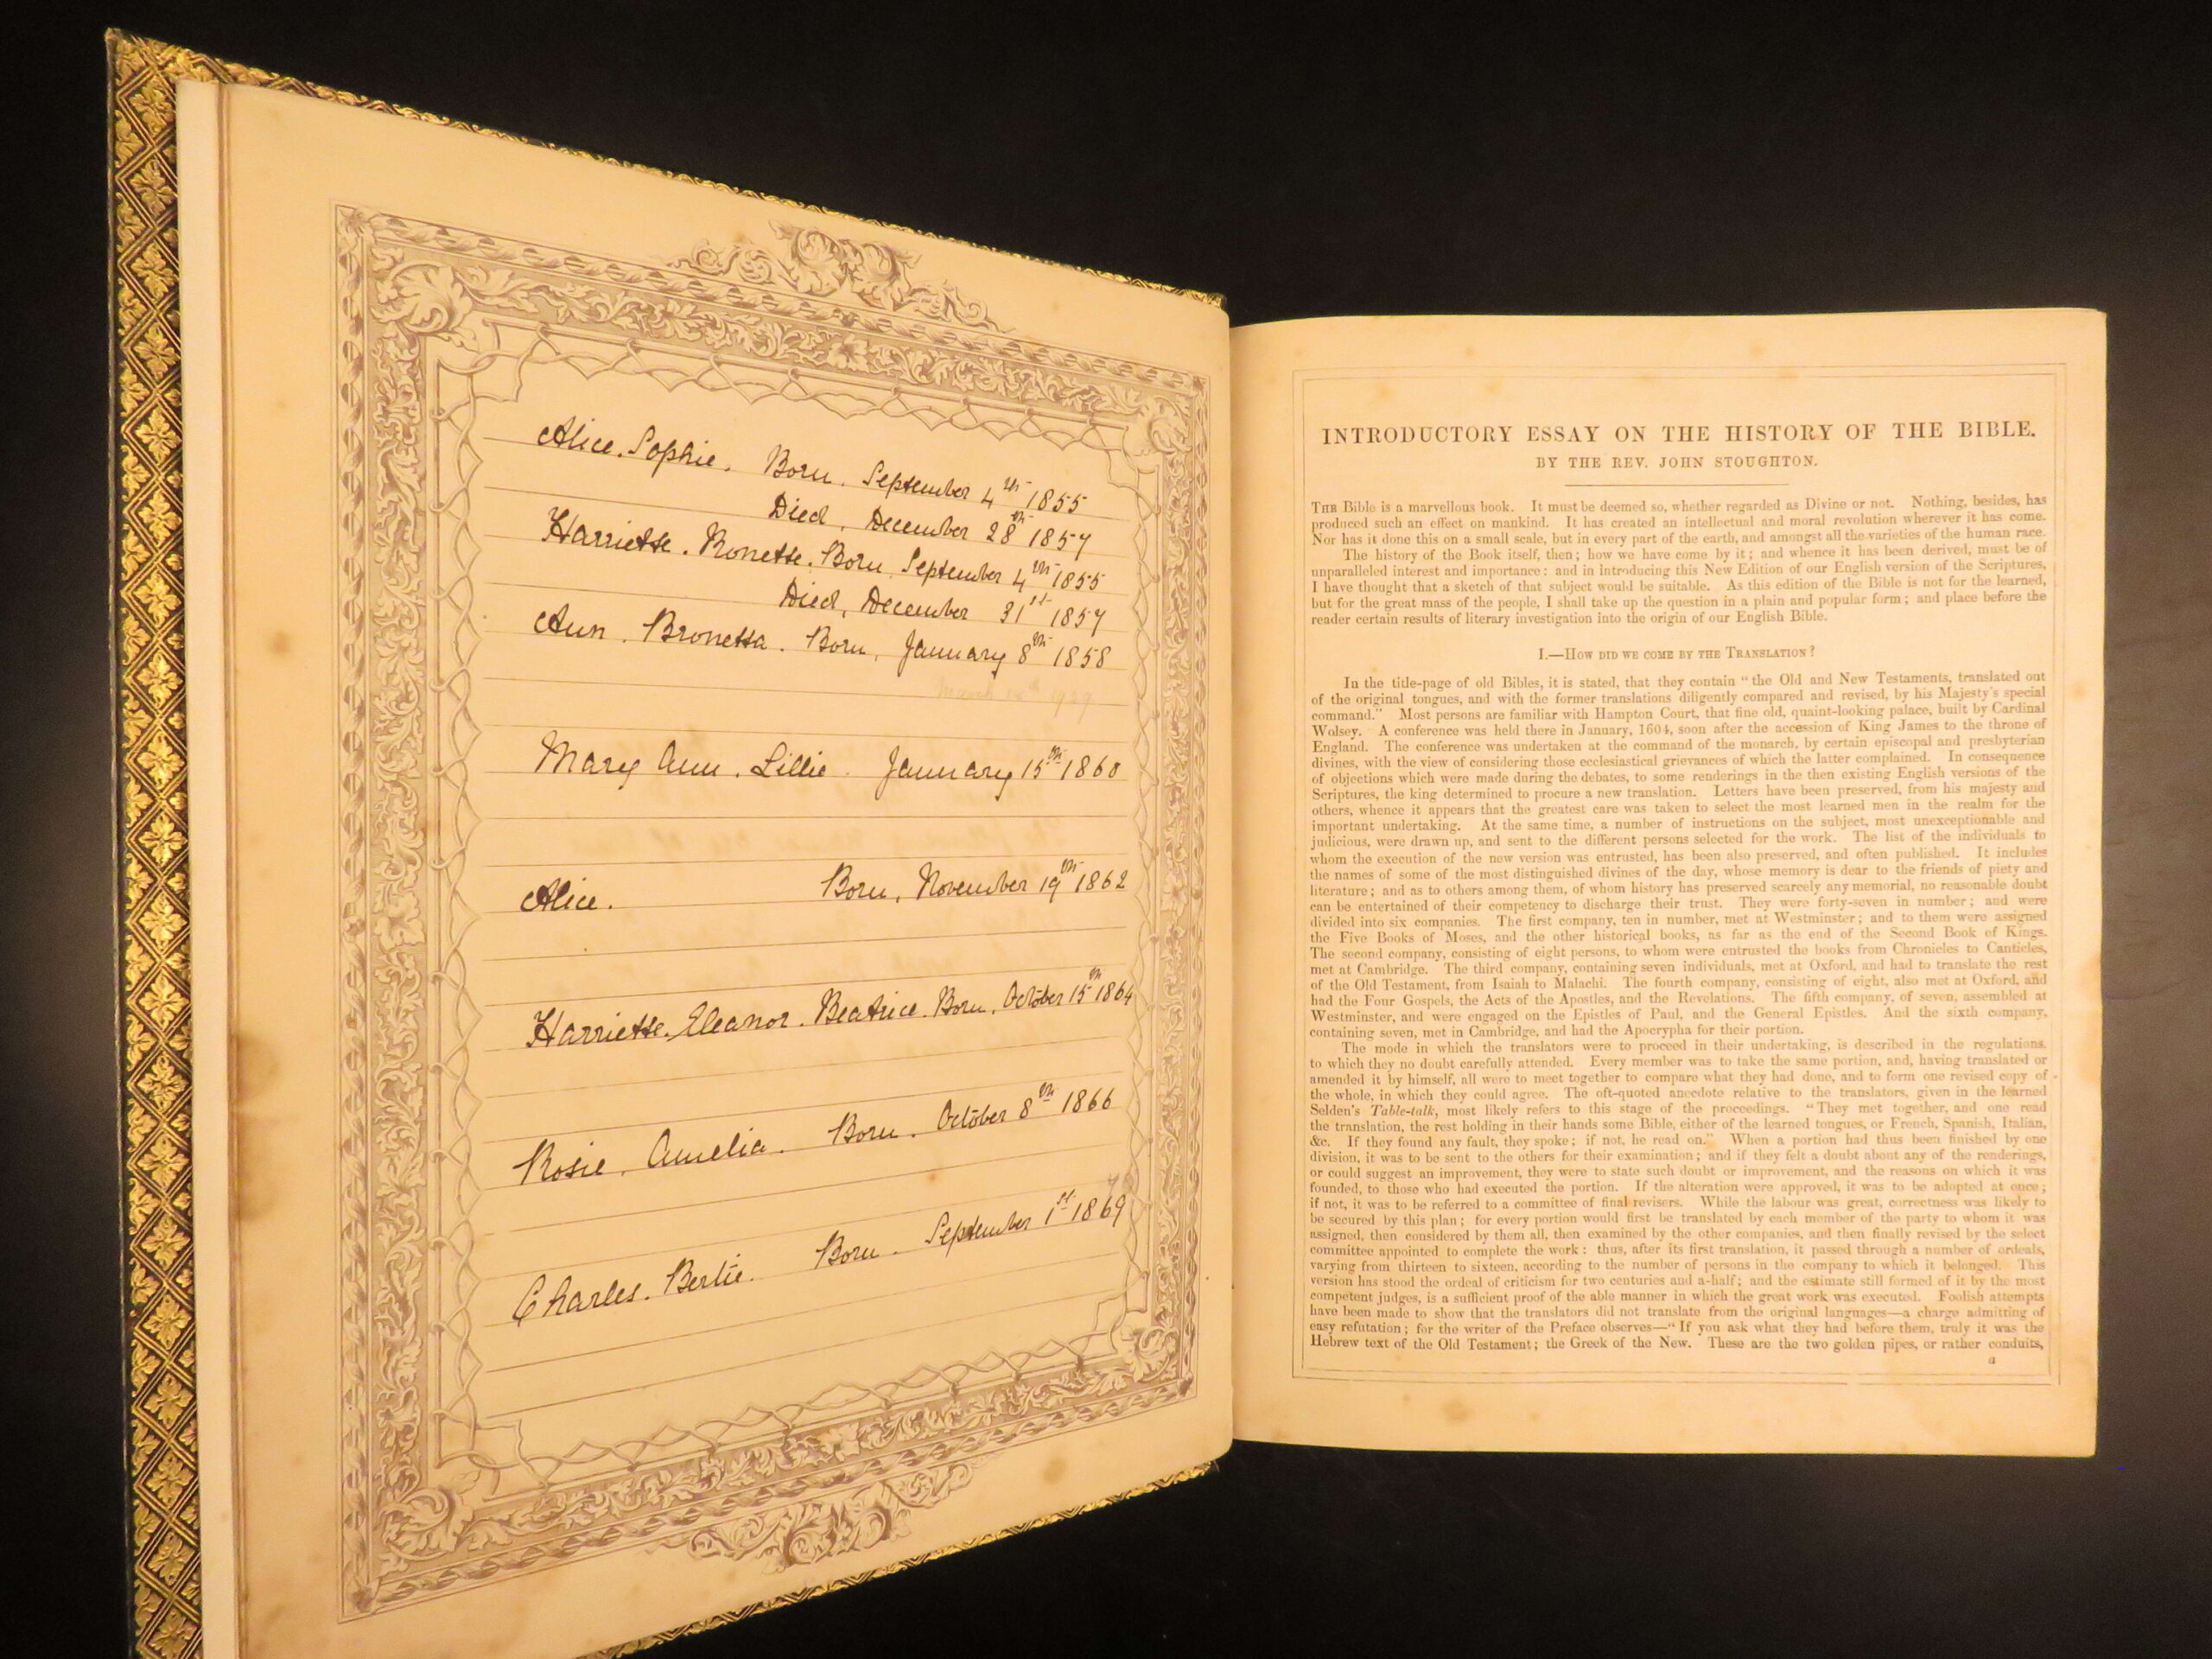 Alice. Sophie. Born. September 4th 1855
Died, December 28th 1857
Harriette. Ronette. Born, September 4th 1855
Died, December 31st 1857
Ann. Bronetta. Born, January 8th 1858
March 1929
Mary Ann. Lillie. January 15th 1860
Alice. Born, November 19th 1862
Harriette. Eleanor. Beatrice. Born, October 15th 1864
Rosie. Amelia. Born. October 8th 1866
Charles. Bertie. Born. September 1st 1869
INTRODUCTORY ESSAY ON THE HISTORY OF THE BIBLE.
BY THE REV. JOHN STOUGHTON.
THE Bible is a marvellous book. It must be deemed so, whether regarded as Divine or not. Nothing, besides, has
produced such an effect on mankind. It has created an intellectual and moral revolution wherever it has come.
Nor has it done this on a small scale, but in every part of the earth, and amongst all the varieties of the human race.
The history of the Book itself, then; how we have come by it; and whence it has been derived, must be of
unparalleled interest and importance: and in introducing this New Edition of our English version of the Scriptures,
I have thought that a sketch of that subject would be suitable. As this edition of the Bible is not for the learned,
but for the great mass of the people, I shall take up the question in a plain and popular form; and place before the
reader certain results of literary investigation into the origin of our English Bible.
I.—HOW DID WE COME BY THE TRANSLATION?
In the title-page of old Bibles, it is stated, that they contain "the Old and New Testaments, translated out
of the original tongues, and with the former translations diligently compared and revised, by his Majesty's special
command." Most persons are familiar with Hampton Court, that fine old, quaint-looking palace, built by Cardinal
Wolsey. A conference was held there in January, 1604, soon after the accession of King James to the throne of
England. The conference was undertaken at the command of the monarch, by certain episcopal and presbyterian
divines, with the view of considering those ecclesiastical grievances of which the latter complained. In consequence
of objections which were made during the debates, to some renderings in the then existing English versions of the
Scriptures, the king determined to procure a new translation. Letters have been preserved, from his majesty and
others, whence it appears that the greatest care was taken to select the most learned men in the realm for the
important undertaking. At the same time, a number of instructions on the subject, most unexceptionable and
judicious, were drawn up, and sent to the different persons selected for the work. The list of the individuals to
whom the execution of the new version was entrusted, has been also preserved, and often published. It includes
the names of some of the most distinguished divines of the day, whose memory is dear to the friends of piety and
literature; and as to others among them, of whom history has preserved scarcely any memorial, no reasonable doubt
can be entertained of their competency to discharge their trust. They were forty-seven in number; and were
divided into six companies. The first company, ten in number, met at Westminster; and to them were assigned
the Five Books of Moses, and the other historical books, as far as the end of the Second Book of Kings.
The second company, consisting of eight persons, to whom were entrusted the books from Chronicles to Canticles,
met at Cambridge. The third company, containing seven individuals, met at Oxford, and had to translate the rest
of the Old Testament, from Isaiah to Malachi. The fourth company, consisting of eight, also met at Oxford, and
had the Four Gospels, the Acts of the Apostles, and the Revelations. The fifth company, of seven, assembled at
Westminster, and were engaged on the Epistles of Paul, and the General Epistles. And the sixth company,
containing seven, met in Cambridge, and had the Apocrypha for their portion.
The mode in which the translators were to proceed in their undertaking, is described in the regulations,
to which they no doubt carefully attended. Every member was to take the same portion, and, having translated or
amended it by himself, all were to meet together to compare what they had done, and to form one revised copy of
the whole, in which they could agree. The oft-quoted anecdote relative to the translators, given in the learned
Selden's Table-talk, most likely refers to this stage of the proceedings. "They met together, and one read
the translation, the rest holding in their hands some Bible, either of the learned tongues, or French, Spanish, Italian,
&c. If they found any fault, they spoke; if not, he read on." When a portion had thus been finished by one
division, it was to be sent to the others for their examination; and if they felt a doubt about any of the renderings,
or could suggest an improvement, they were to state such doubt or improvement, and the reasons on which it was
founded, to those who had executed the portion. If the alteration were approved, it was to be adopted at once;
if not, it was to be referred to a committee of final revisers. While the labour was great, correctness was likely to
be secured by this plan; for every portion would first be translated by each member of the party to whom it was
assigned, then considered by them all, then examined by the other companies, and then finally revised by the select
committee appointed to complete the work: thus, after its first translation, it passed through a number of ordeals,
varying from thirteen to sixteen, according to the number of persons in the company to which it belonged. This
version has stood the ordeal of criticism for two centuries and a-half; and the estimate still formed of it by the most
competent judges, is a sufficient proof of the able manner in which the great work was executed. Foolish attempts
have been made to show that the translators did not translate from the original languages—a charge admitting of
easy refutation; for the writer of the Preface observes—"If you ask what they had before them, truly it was the
Hebrew text of the Old Testament; the Greek of the New. These are the two golden pipes, or rather conduits,
a